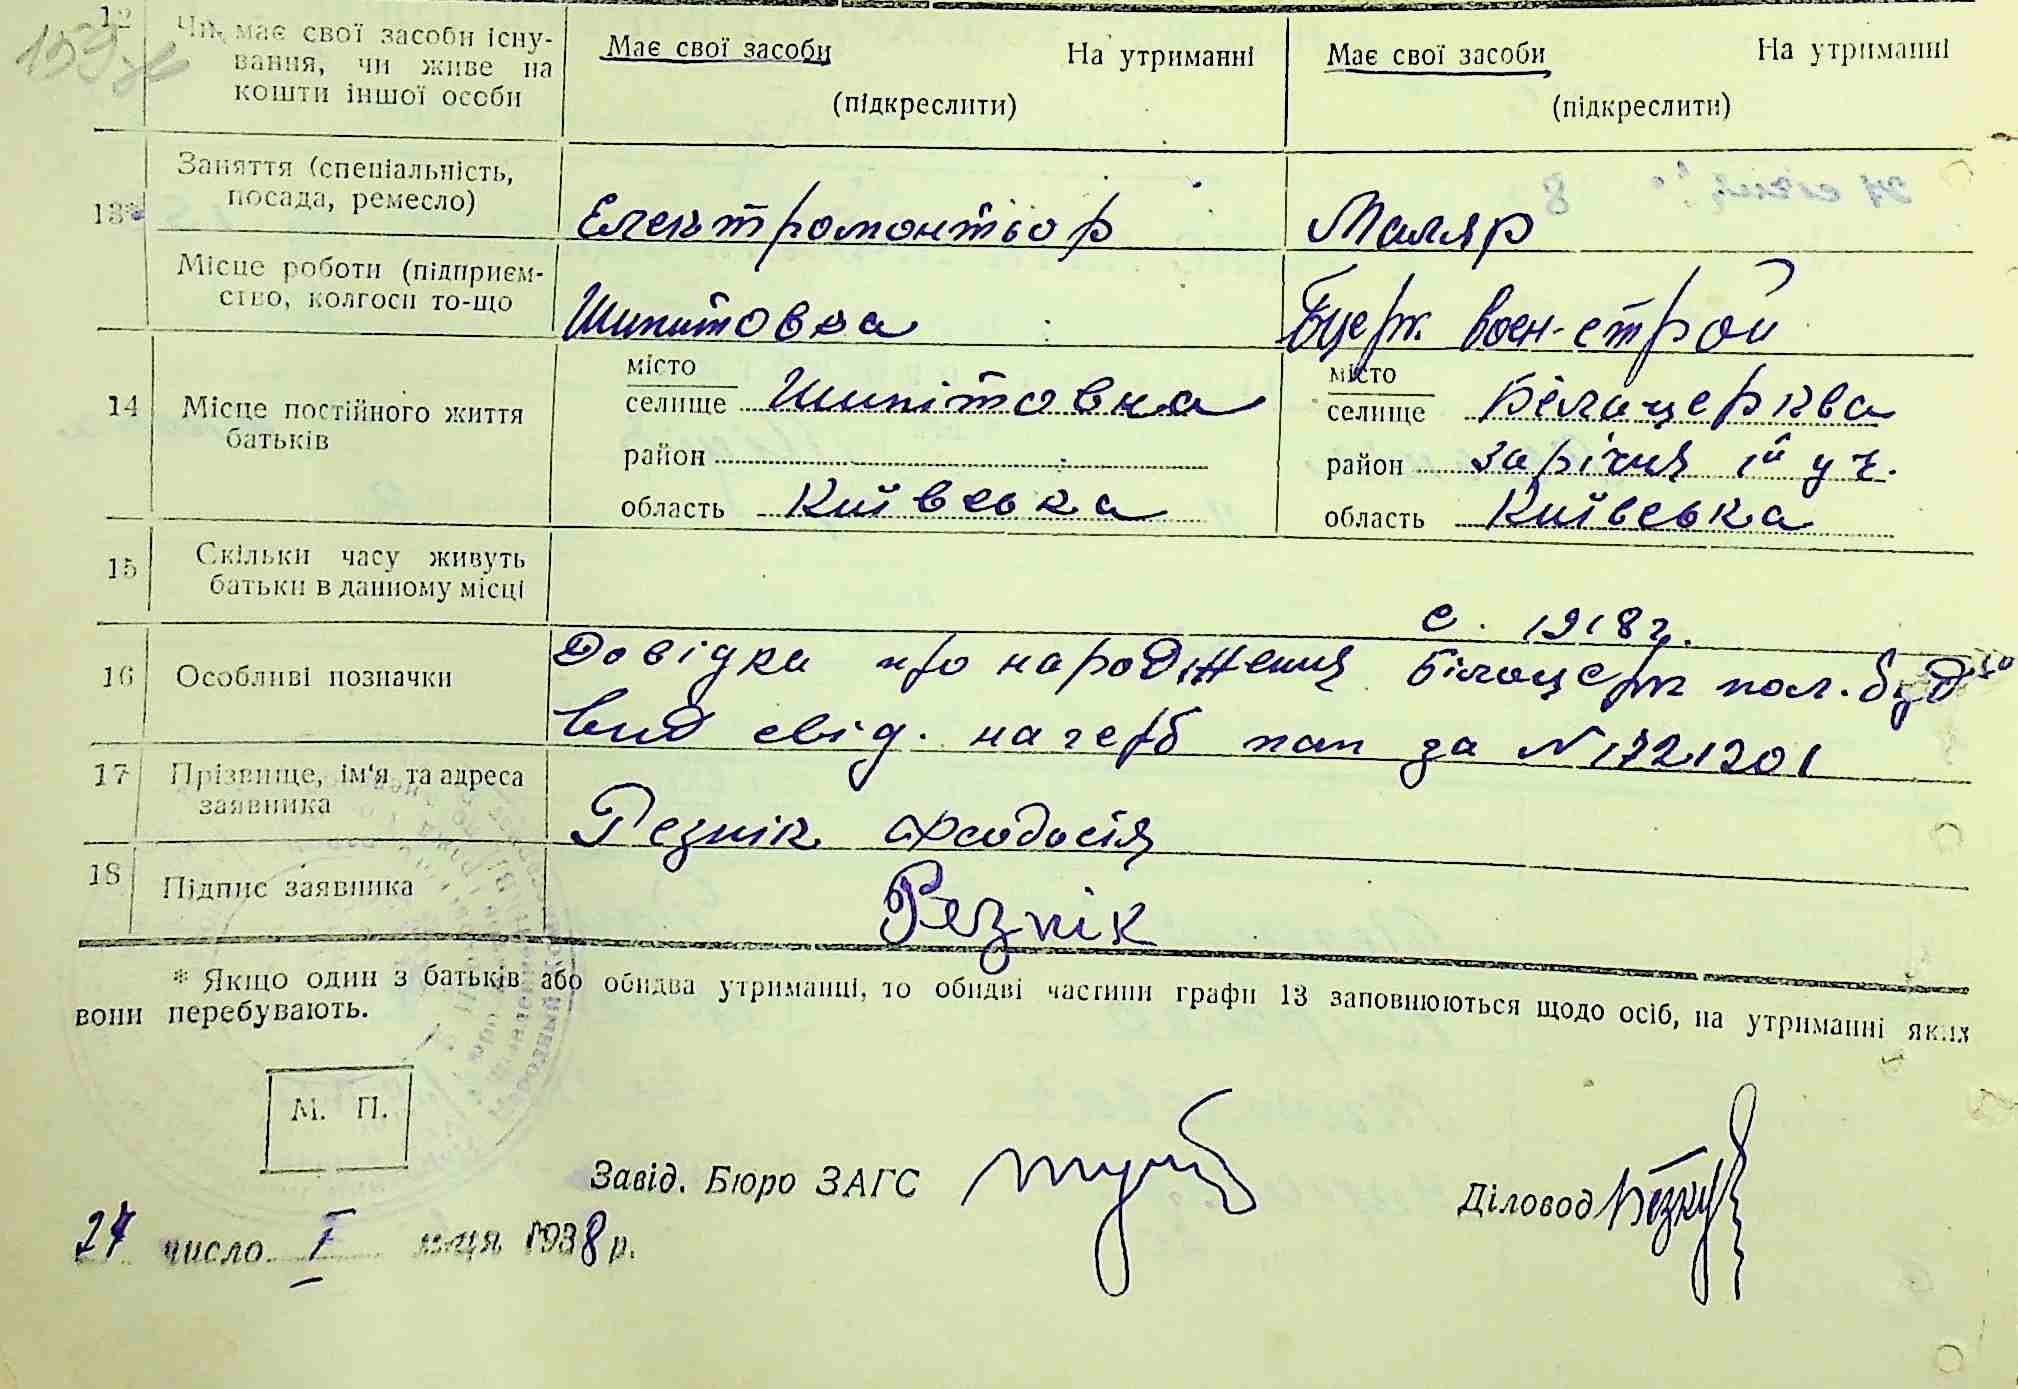 159
12 Чи має свої засоби існу-
вання, чи живе на
кошти іншої особи
Має свої засоби На утриманні
(підкреслити)
Має свої засоби На утриманні
(підкреслити)
13* Заняття (спеціальність,
посада, ремесло)
Електромонтьор
Маляр
Місце роботи (підприєм-
ство, колгосп то-що
Шипитовка
Бцерк воен-строй
14 Місце постійного життя
батьків
місто
селище Шипітовка
район
область Київська
місто
селище Білацерква
район Заріччя 1й уч.
область Київська
15 Скільки часу живуть
батьки в данному місці
с. 1918 г.
16 Особливі позначки
Довідка про народження Білоцерк пол. буд
вид свід. на герб пап за № 1721201
17 Прізвище, ім'я та адреса
заявника
Резнік Феодосія
18 Підпис заявника
Резнік
* Якщо один з батьків або обидва утриманці, то обидві частини графи 13 заповнюються щодо осіб, на утриманні яких
вони перебувають.
М. П.
Завід. Бюро ЗАГС
Діловод
27 число І м-ця 1938 р.